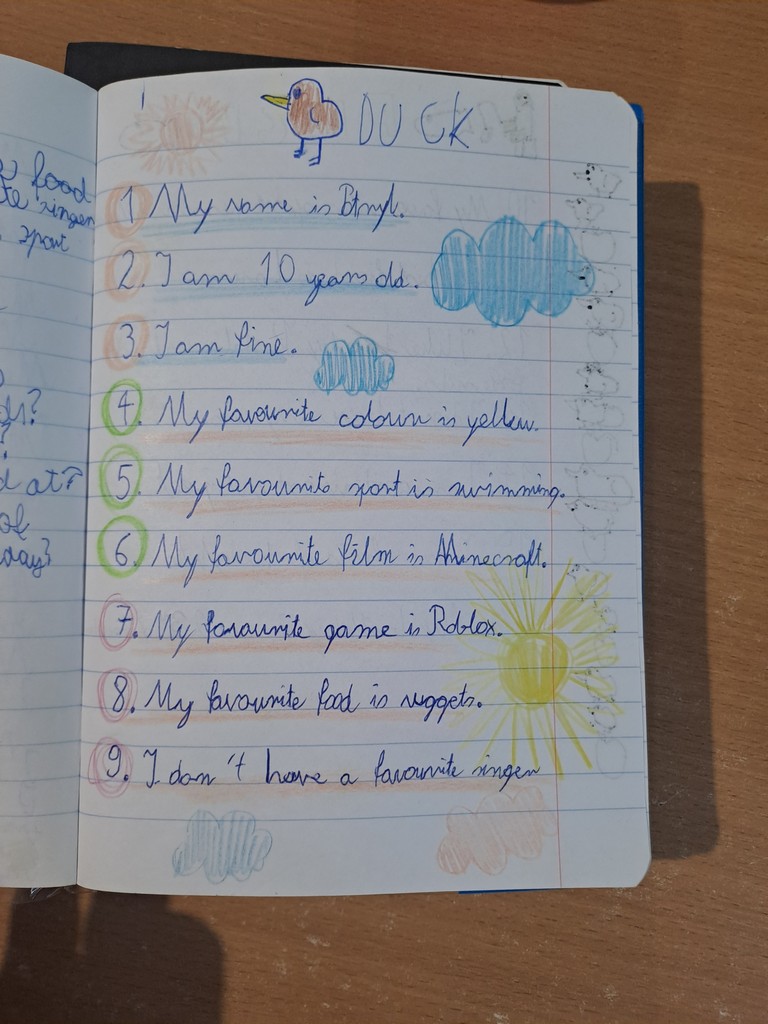 food
singer
sport
at?
of
day?
DUCK
1. My name is
2. I am 10 years old.
3. I am fine.
4. My favourite colour is yellow.
5. My favourite sport is swimming.
6. My favourite film is Minecraft.
7. My favourite game is Roblox.
8. My favourite food is nuggets.
9. I don't have a favourite singer